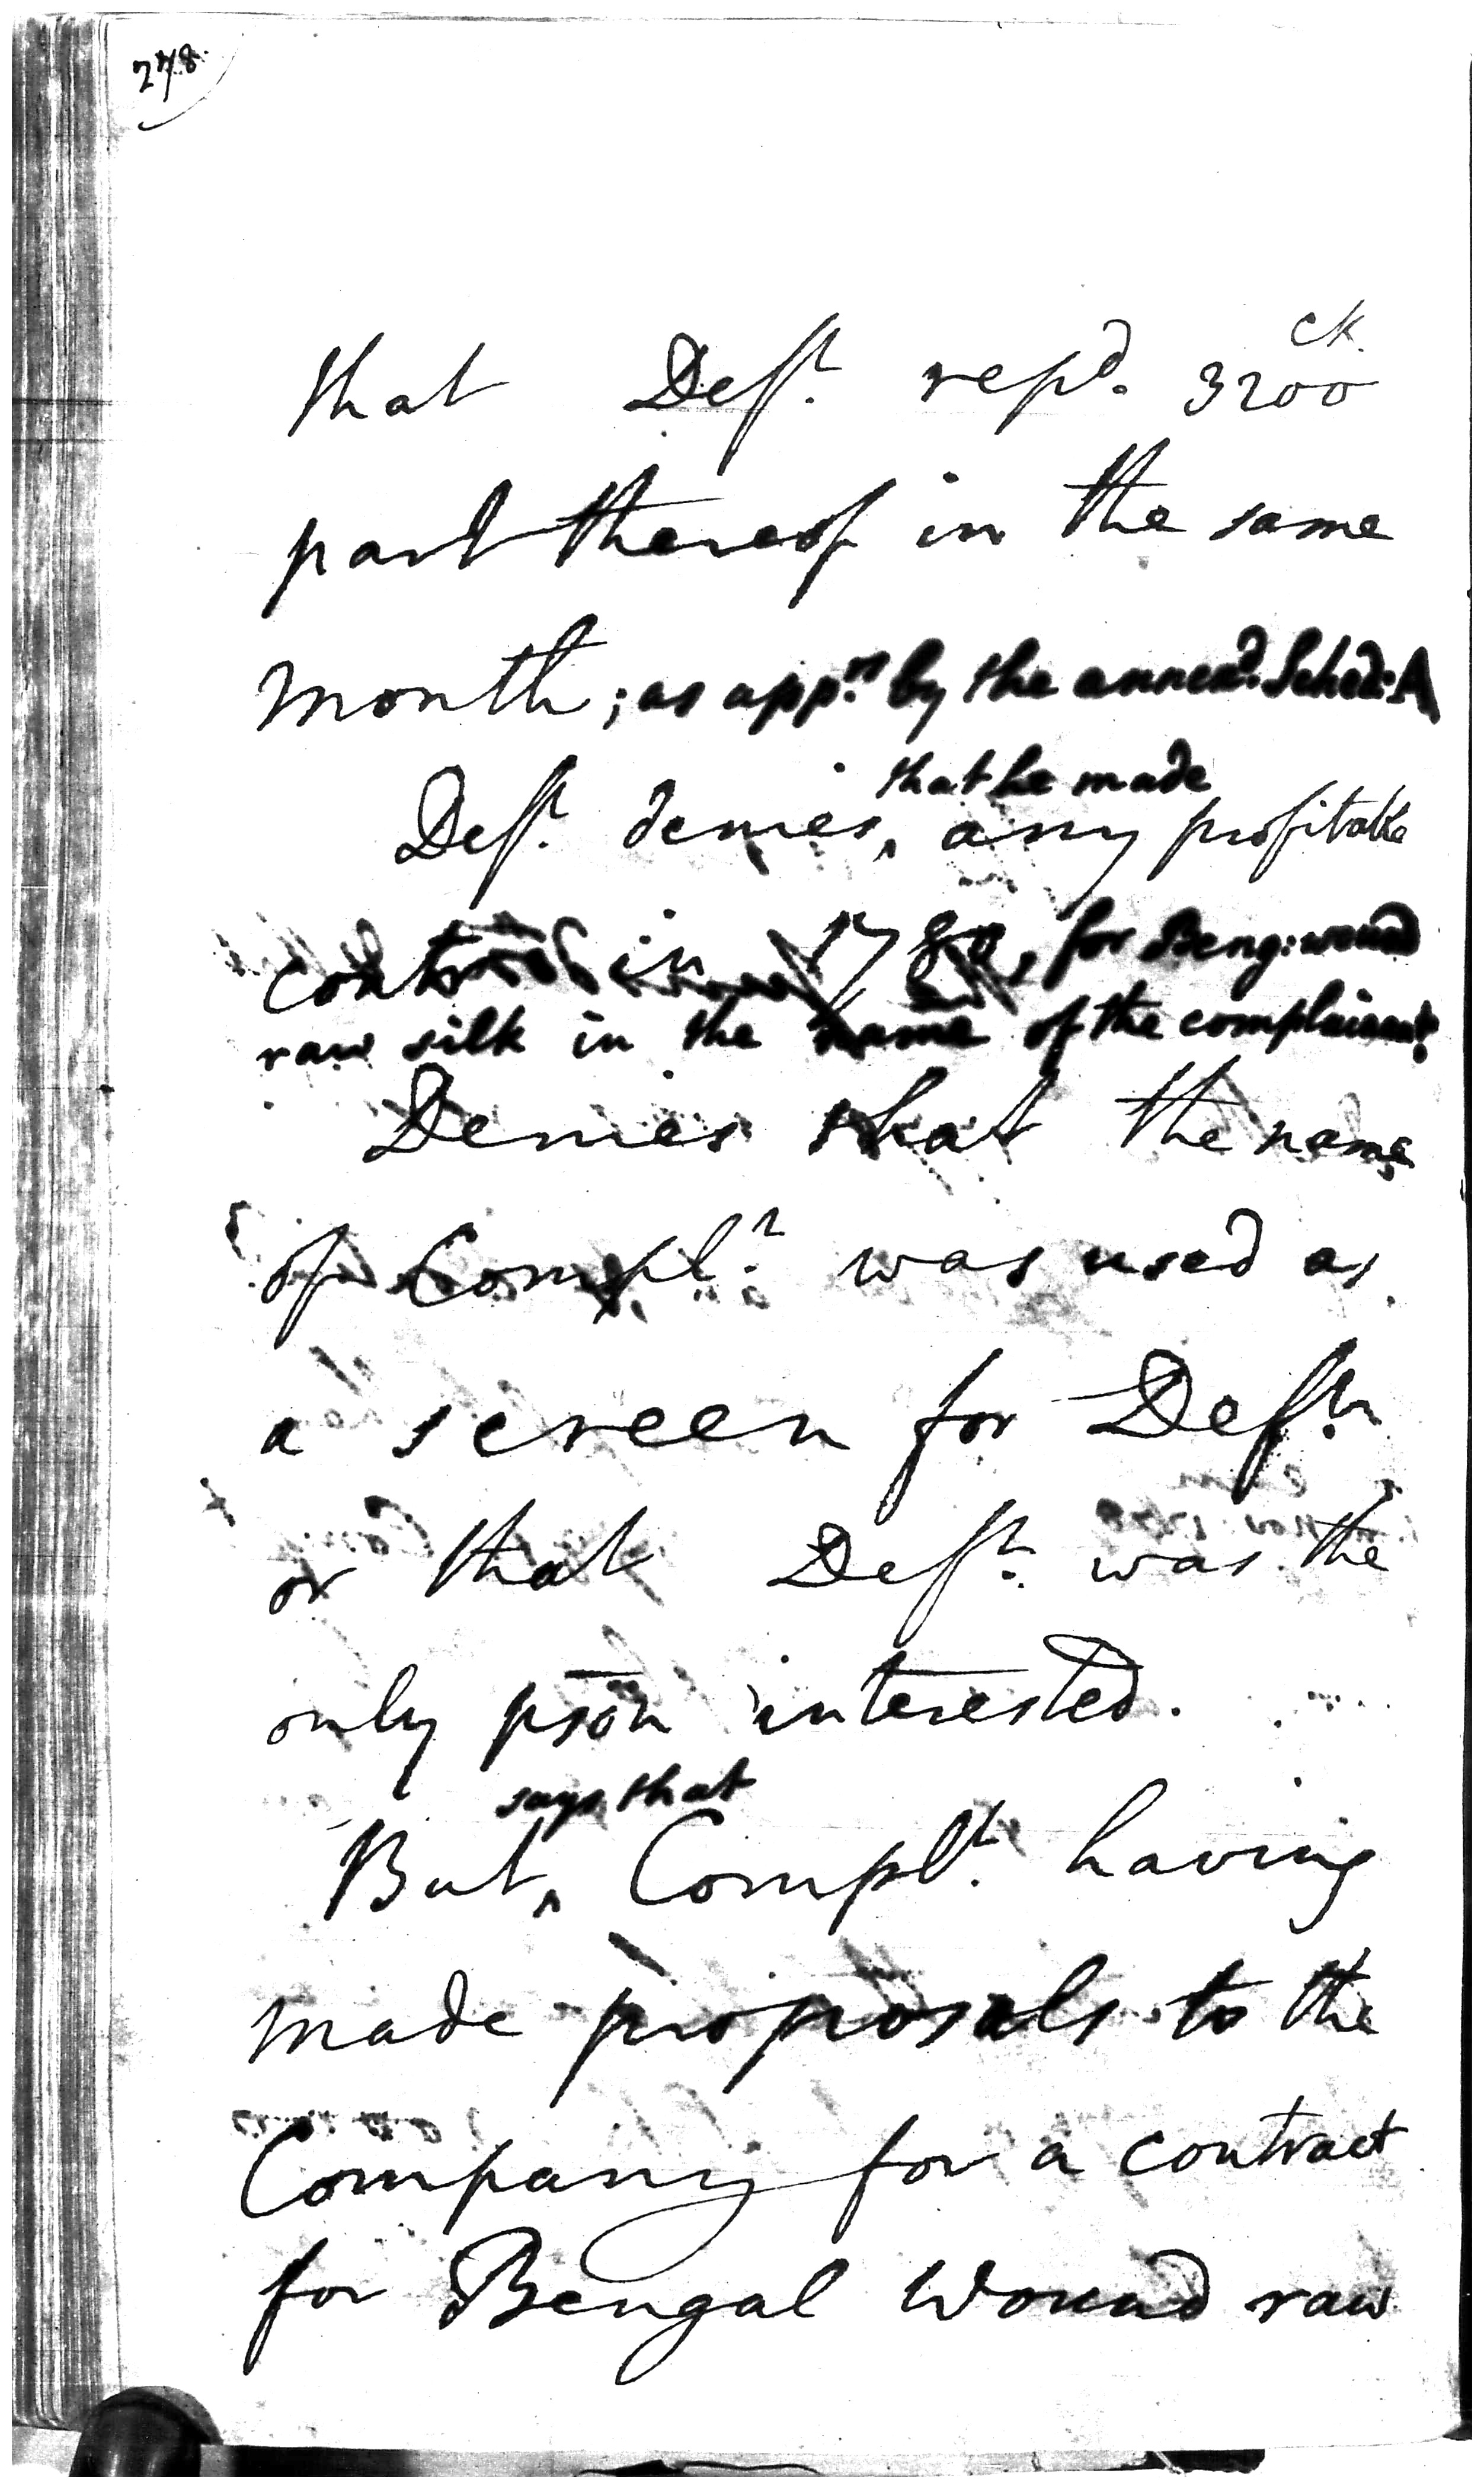 278.
ck.
that Deft. repd. 3200
part thereof in the same
month; as apprs. by the annexd. Sched: A
that he made
Deft. denies ‸ any profitable
contract in 1780, for Beng: wound
raw silk in the name of the complainant.
Denies that the name
of Complt. was used as
a screen for Deft.
or that Deft. was the
only pson interested.
says that
But ‸ Complt. having
made proposals to the
Company for a contract
for Bengal Wound raw